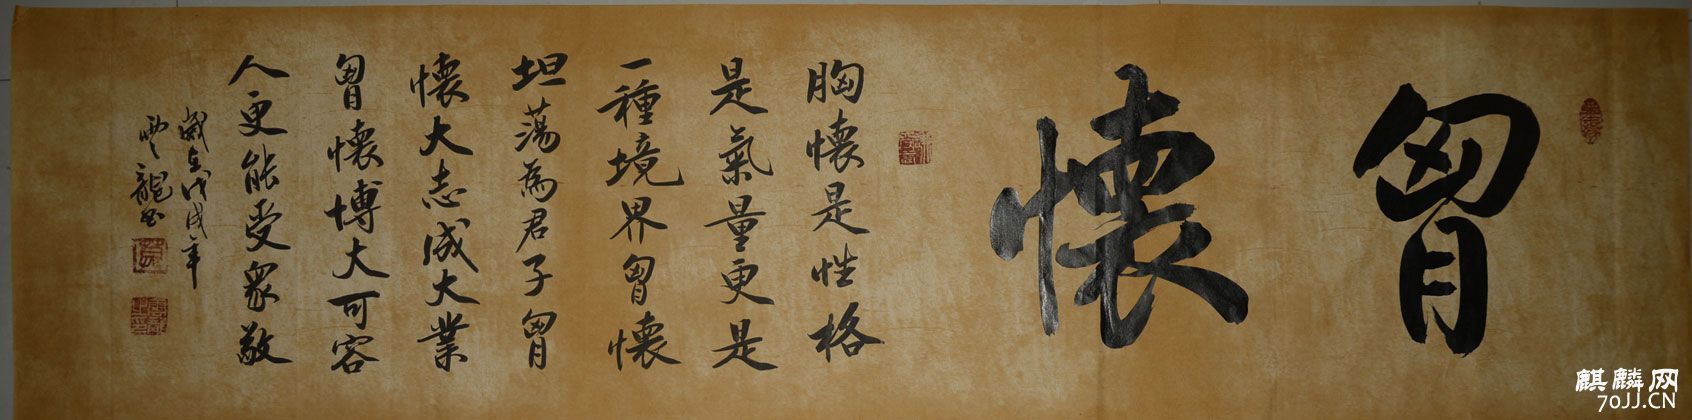 胷懷
胸懷是性格
是氣量更是
一種境界胷懷
坦蕩為君子胷
懷大志成大業
胷懷博大可容
人更能受衆敬
歲在戊戌年
雲龍书
麒麟网
70JJ.CN